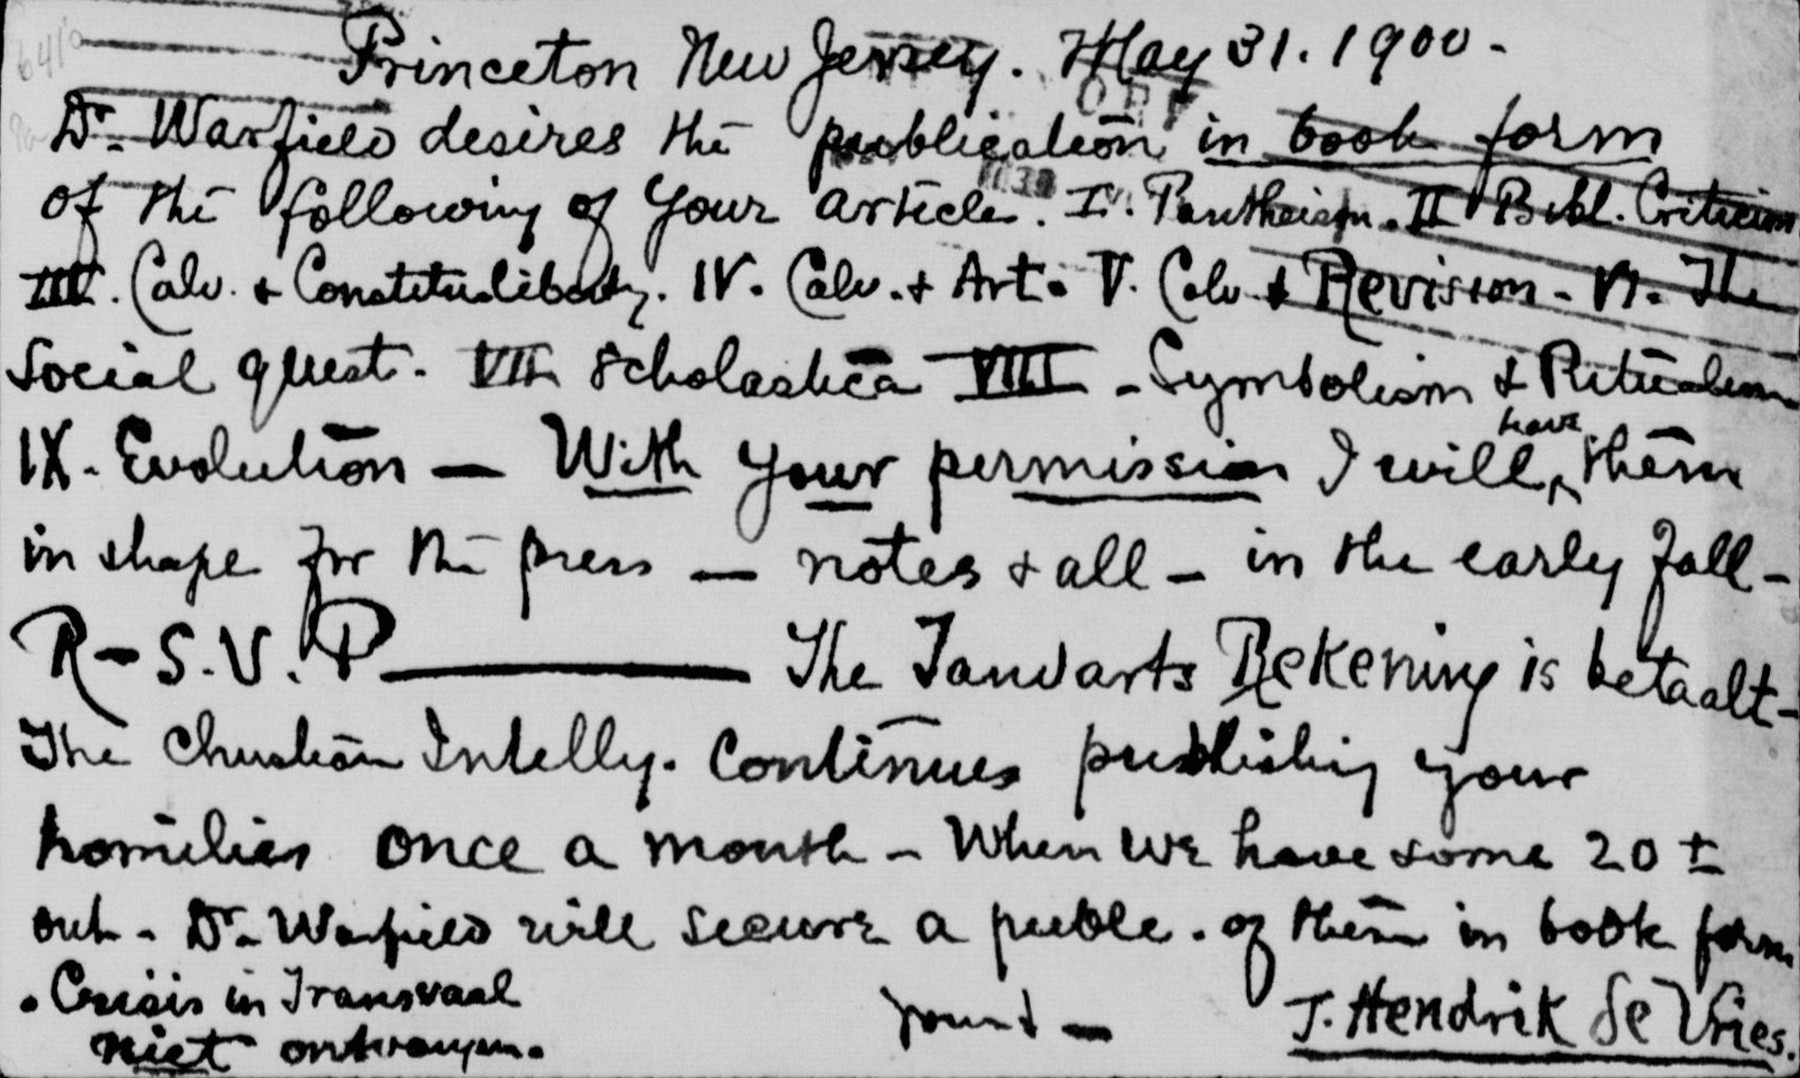 Princeton New Jersey. May 31. 1900-
Dr. Warfield desires the publication in book form
of the following of your article. I. Pantheism. II Bibl. Criticism
III. Calv. & Constitu. liberty. IV. Calv. & Art. V. Calv & Revision - VI. The
Social quest. VII Scholastica VIII - Symbolism & Ritualism
IX - Evolution — With your permission I will have them
in shape for the press — notes & all - in the early fall -
R-S.V.P — The Rekening is betaalt-
The Christian Intellg. Continues publishing your
homilies once a month - When we have some 20 ±
out - Dr. Warfield will secure a puble. of them in book form
. Crisis in Transvaal
niet ontvangen.
J. Hendrik de Vries.